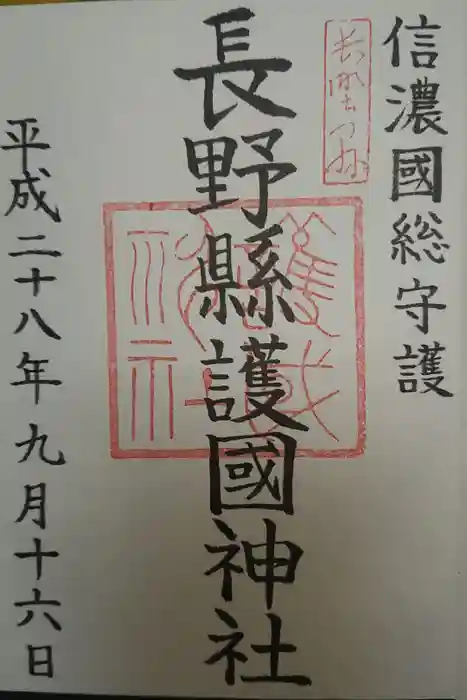 信濃國総守護
長野縣護國神社
平成二十八年九月十六日